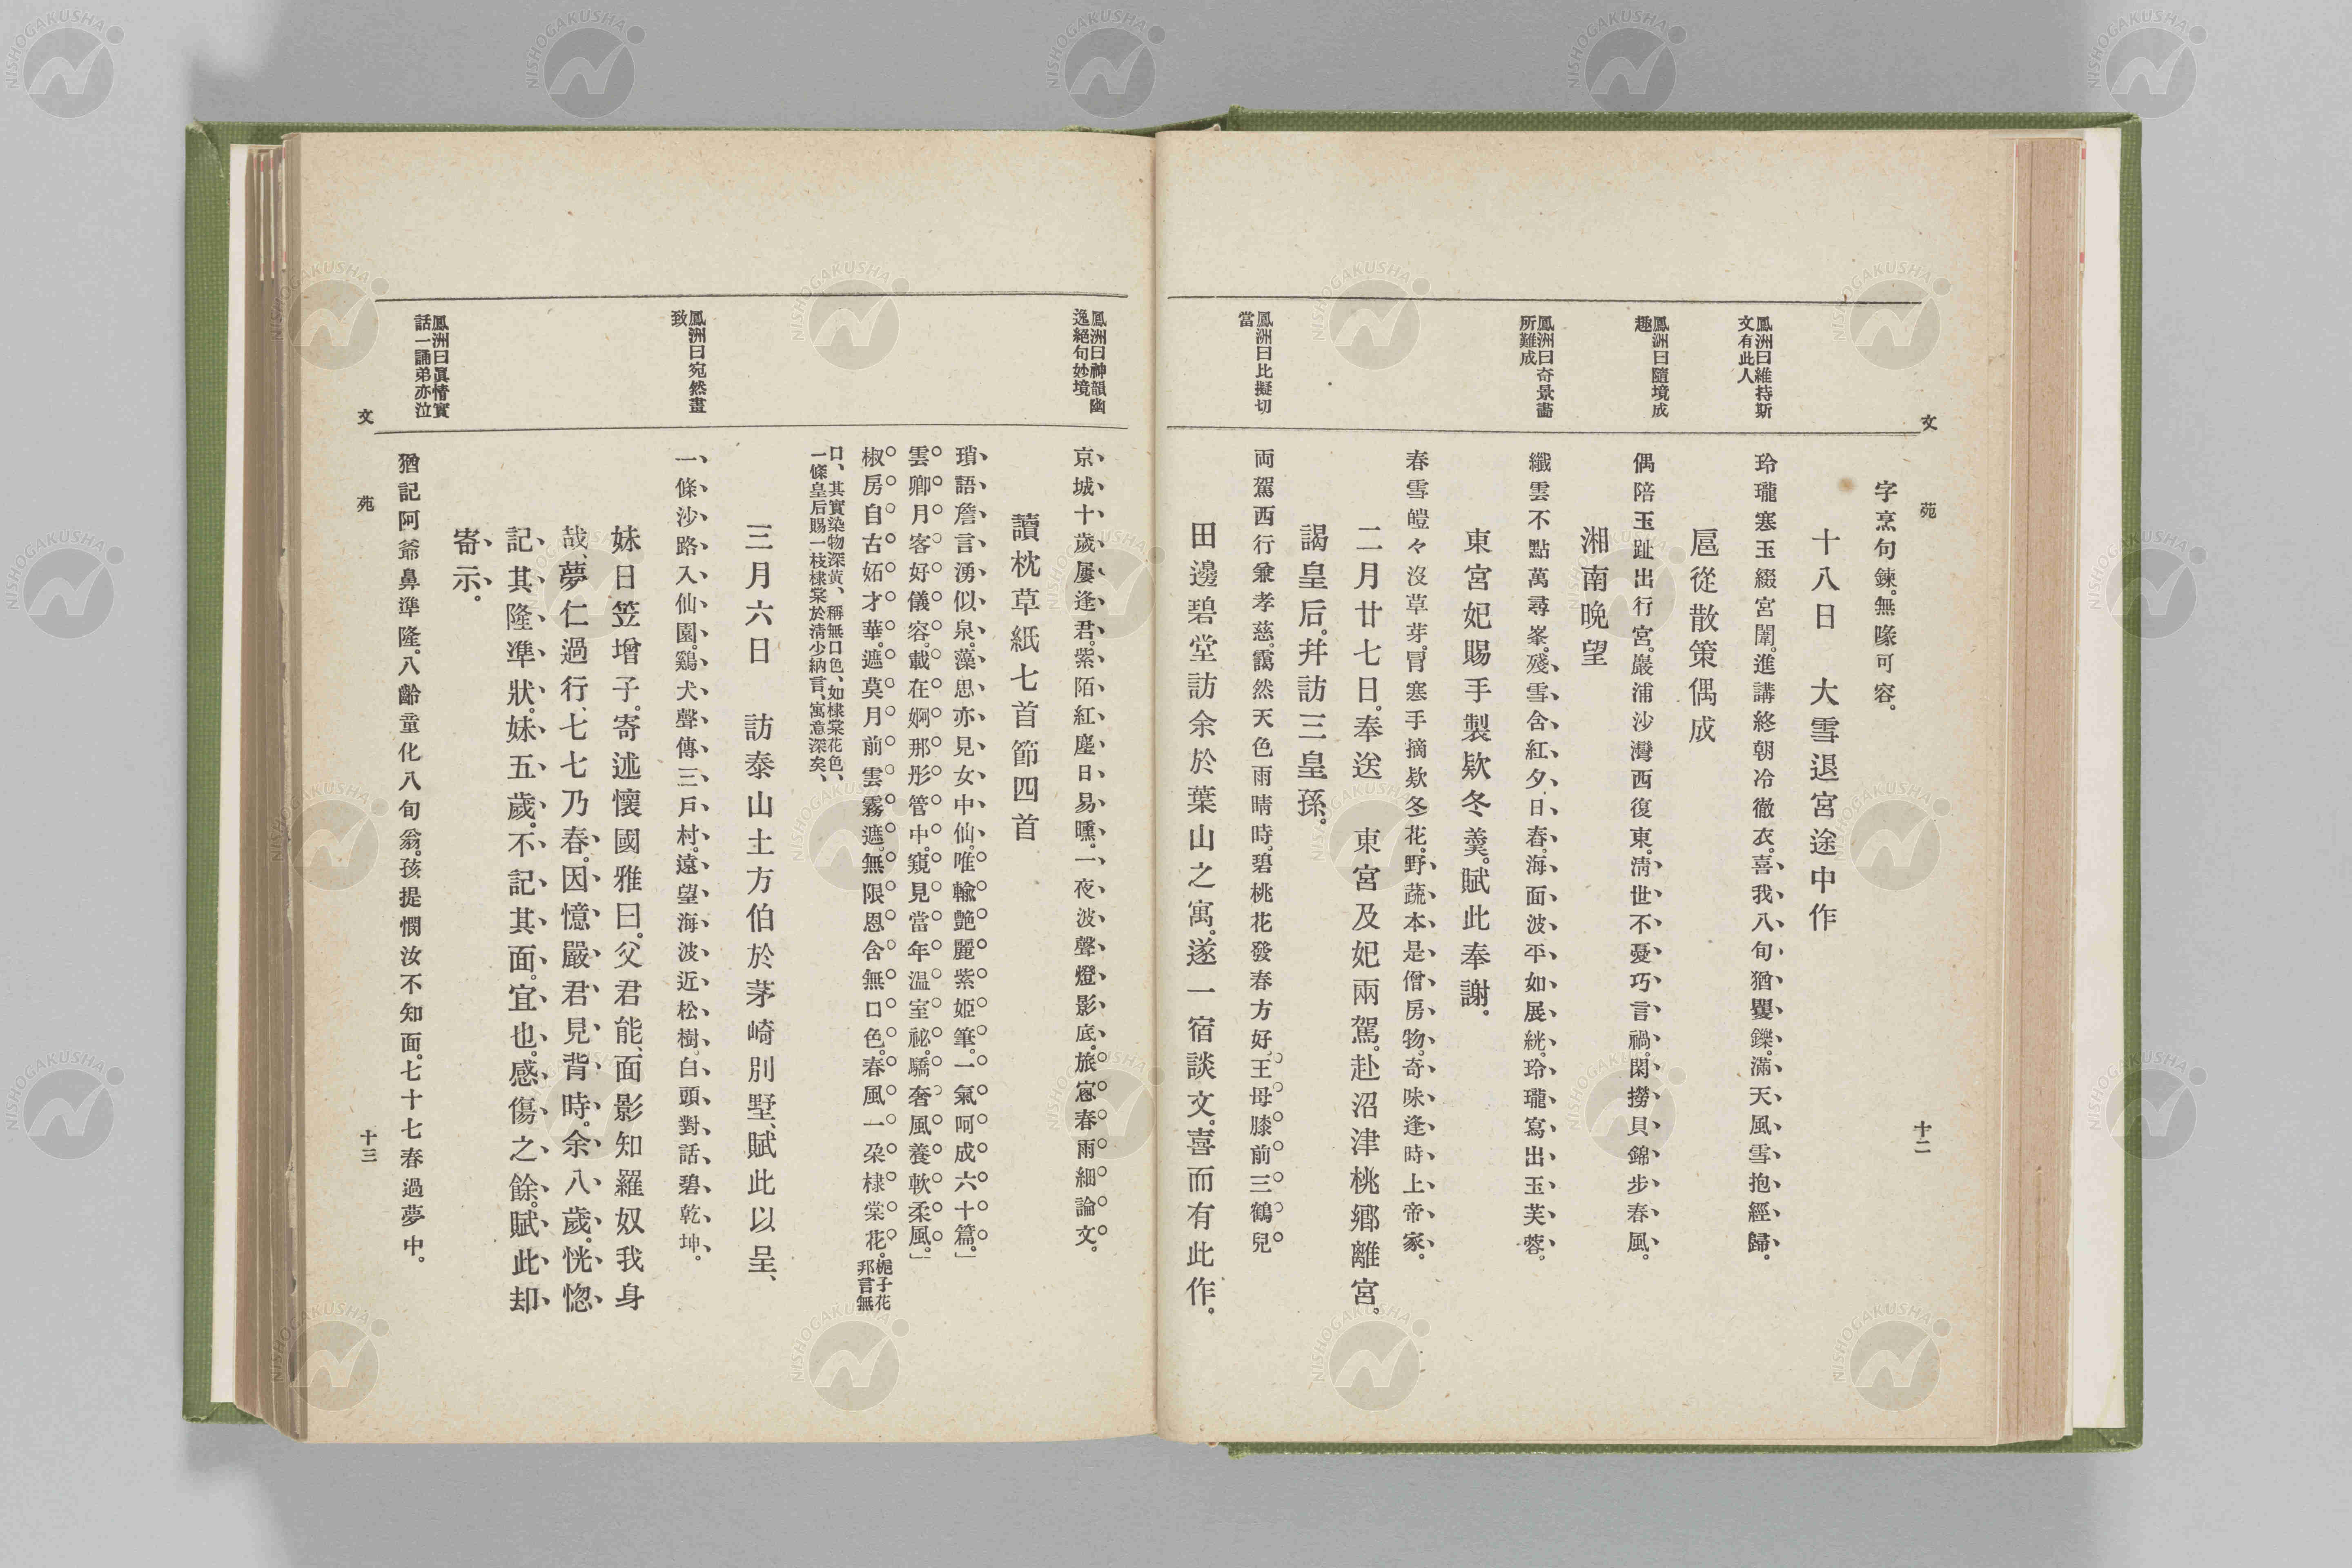 文苑
十二
字烹句鍊。無喙可容。
十八日　大雪退宮途中作
鳳洲曰維持斯
文有此人
玲瓏寒玉綴宮闈。進講終朝冷徹衣。喜我八旬猶矍鑠。滿天風雪抱經歸。
扈從散策偶成
鳳洲曰隨境成
趣
偶陪玉趾出行宮。巖浦沙灣西復東。淸世不憂巧言禍。閑撈貝錦步春風。
湘南晩望
鳳洲曰奇景畵
所難成
纖雲不點萬尋峯。殘雪含紅夕日舂。海面波平如展絖。玲瓏寫出玉芙蓉。
東宮妃賜手製欵冬羹。賦此奉謝。
春雪皚々沒草芽。冐寒手摘欵冬花。野蔬本是僧房物。奇味逢時上帝家。
二月廿七日。奉送　東宮及妃兩駕。赴沼津桃鄕離宮。
謁皇后。幷訪三皇孫。
鳳洲曰比擬切
當
両駕西行兼孝慈。靄然天色雨晴時。碧桃花發春方好。王母膝前三鶴兒
田邊碧堂訪余於葉山之寓。遂一宿談文。喜而有此作。
鳳洲曰神韻幽
逸絕句妙境
京城十歲屢逢君。紫陌紅塵日易曛。一夜波聲燈影底。旅窻春雨細論文。
讀枕草紙七首節四首
瑣語詹言湧似泉。藻思亦見女中仙。唯輸艶麗紫姬筆。一氣呵成六十篇。」
雲卿月客好儀容。載在婀那彤管中。窺見當年温室祕。驕奢風養軟柔風。」
椒房自古妬才華。遮莫月前雲霧遮。無限恩含無口色。春風一朶棣棠花。梔子花
邦言無
口、其實染物深黃、稱無口色、如棣棠花色、
一條皇后賜一枝棣棠於淸少納言、寓意深矣、
三月六日　訪泰山土方伯於茅崎別墅、賦此以呈、
鳳洲曰宛然畫
致
一條沙路入仙園。鷄犬聲傳三戶村。遠望海波近松樹。白頭對話碧乾坤。
妹日笠增子。寄述懷國雅曰。父君能、面影知羅奴我身
哉、夢仁過行、七七乃春。因憶嚴君見背時。余八歲。恍惚
記其隆準狀。妹五歲。不記其面。宜也。感傷之餘。賦此却
寄示。
鳳洲曰眞情實
話一誦弟亦泣
猶記阿爺鼻準隆。八齡童化八旬翁。孩提憫汝不知面。七十七春過夢中。
文苑
十三
NISHOGAKUSHA